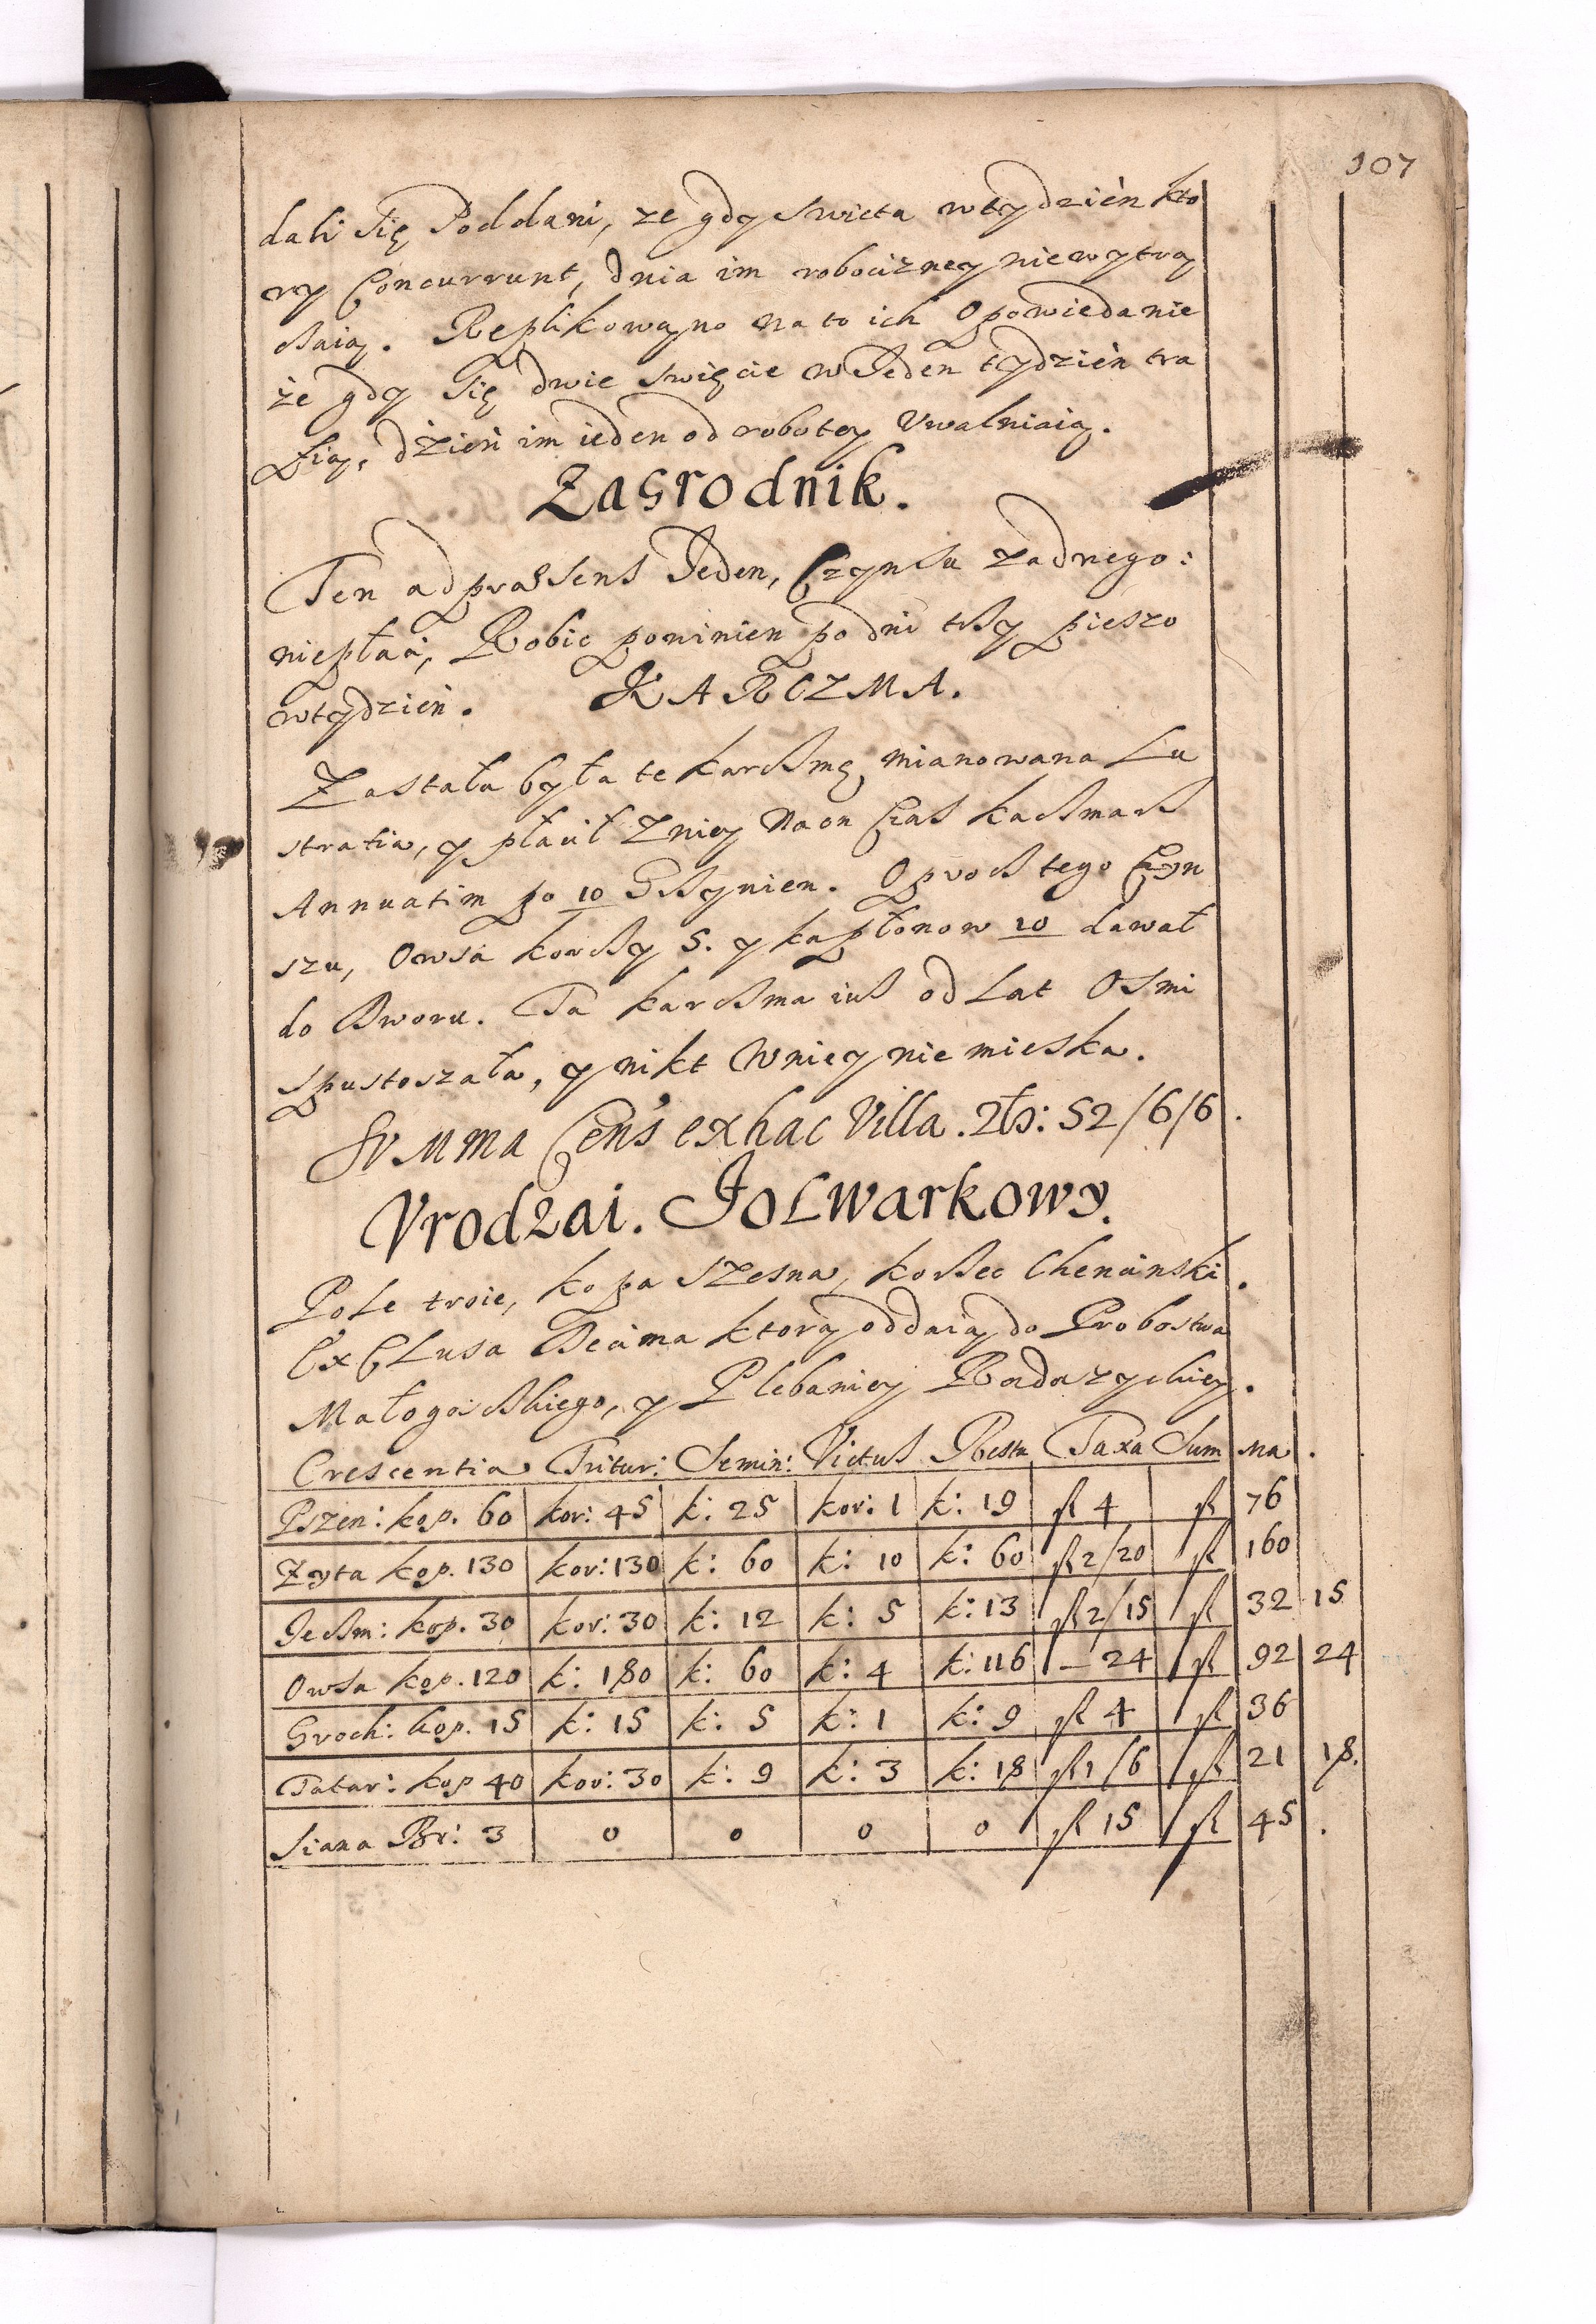 107
dali się Poddani, ze gdy swieta wtydzień kto
ry Concurrunt, dnia im robocizney niewytrą
caią. Replikowano na to ich Opowiedanie
że gdy się dwie swięcie w Jeden tydzień tra
fią, dźień im ieden od roboty Uwalniaią.
Zagrodnik.
Ten ad præsens Jeden, Czynszu zadnego:
niepłaci, Robic powinien po dni trzy pieszo
wtydzień.
KARCZMA.
Zastała była te karczmę mianowana Lu
stratia, y płacił Zniey Na on Czas kaczmarz
Annuatim po 10 Grzywien. Oprocz tego Czyn
szu, Owsa korcy 5. y kapłonow 10 dawał
do Dworu. Ta karczma iusz od Lat Osmi
spustoszała, y nikt Wniey nie mieszka.
SVMMA Cens' ex hac Villa. Zło: 52/6/6.
Vrodzai. Folwarkowy.
Pole troie, kopa szesna, korzec Chencinski.
Ex Clusa Decima ktorą oddaią do Probostwa
Małogoskiego, y Plebaniey Radoszyckiey.
Crescentia Tritur: Semin: Victus Resta Taxa Sum ma.
Pszen: kop. 60 kor: 45 k: 25 kor: 1 k: 19 fl 4 fl 76
Zyta kop. 130 kor: 130 k: 60 k: 10 k: 60 fl 2/20 fl 160
Jeczm: kop. 30 kor: 30 k: 12 k: 5 k: 13 fl 2/15 fl 32 15
Owsa kop. 120 k: 180 k: 60 k: 4 k: 116 – 24 fl 92 24
Groch: kop. 15 k: 15 k: 5 k: 1 k: 9 fl 4 fl 36
Tatar: kop 40 kor: 30 k: 9 k: 3 k: 18 fl 1/6 fl 21 18.
Siana Br: 3 0 0 0 0 fl 15 fl 45.